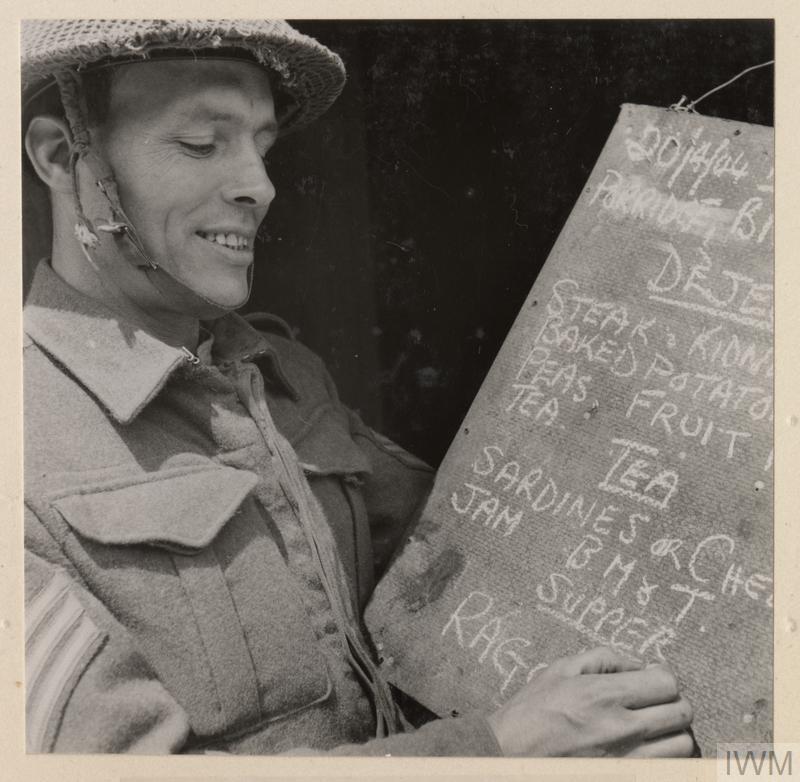 20/4/44
PORRIDGE, B
DEJE
STEAK & KIDN
BAKED POTATO
PEAS FRUIT
TEA.
TEA
SARDINES OR CHE
JAM
B M & T.
SUPPER
RAGO
IWM